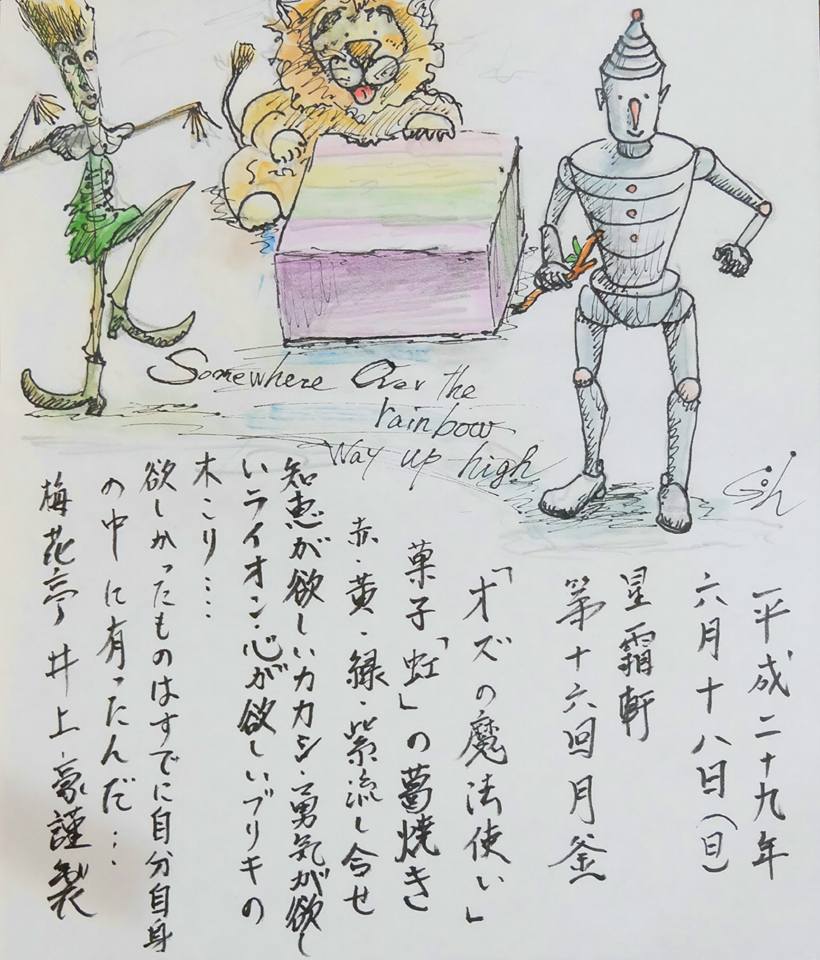 Somewhere Over the
rainbow
Way up high
平成二十九年
六月十八日(日)
星霜軒
第十六回月釜
「オズの魔法使い」
菓子「虹」の葛焼き
赤・黄・緑・紫流し合せ
知恵が欲しいカカシ・勇気が欲し
いライオン・心が欲しいブリキの
木こり‥‥
欲しかったものはすでに自分自身
の中に有ったんだ…
梅花亭 井上豪謹製